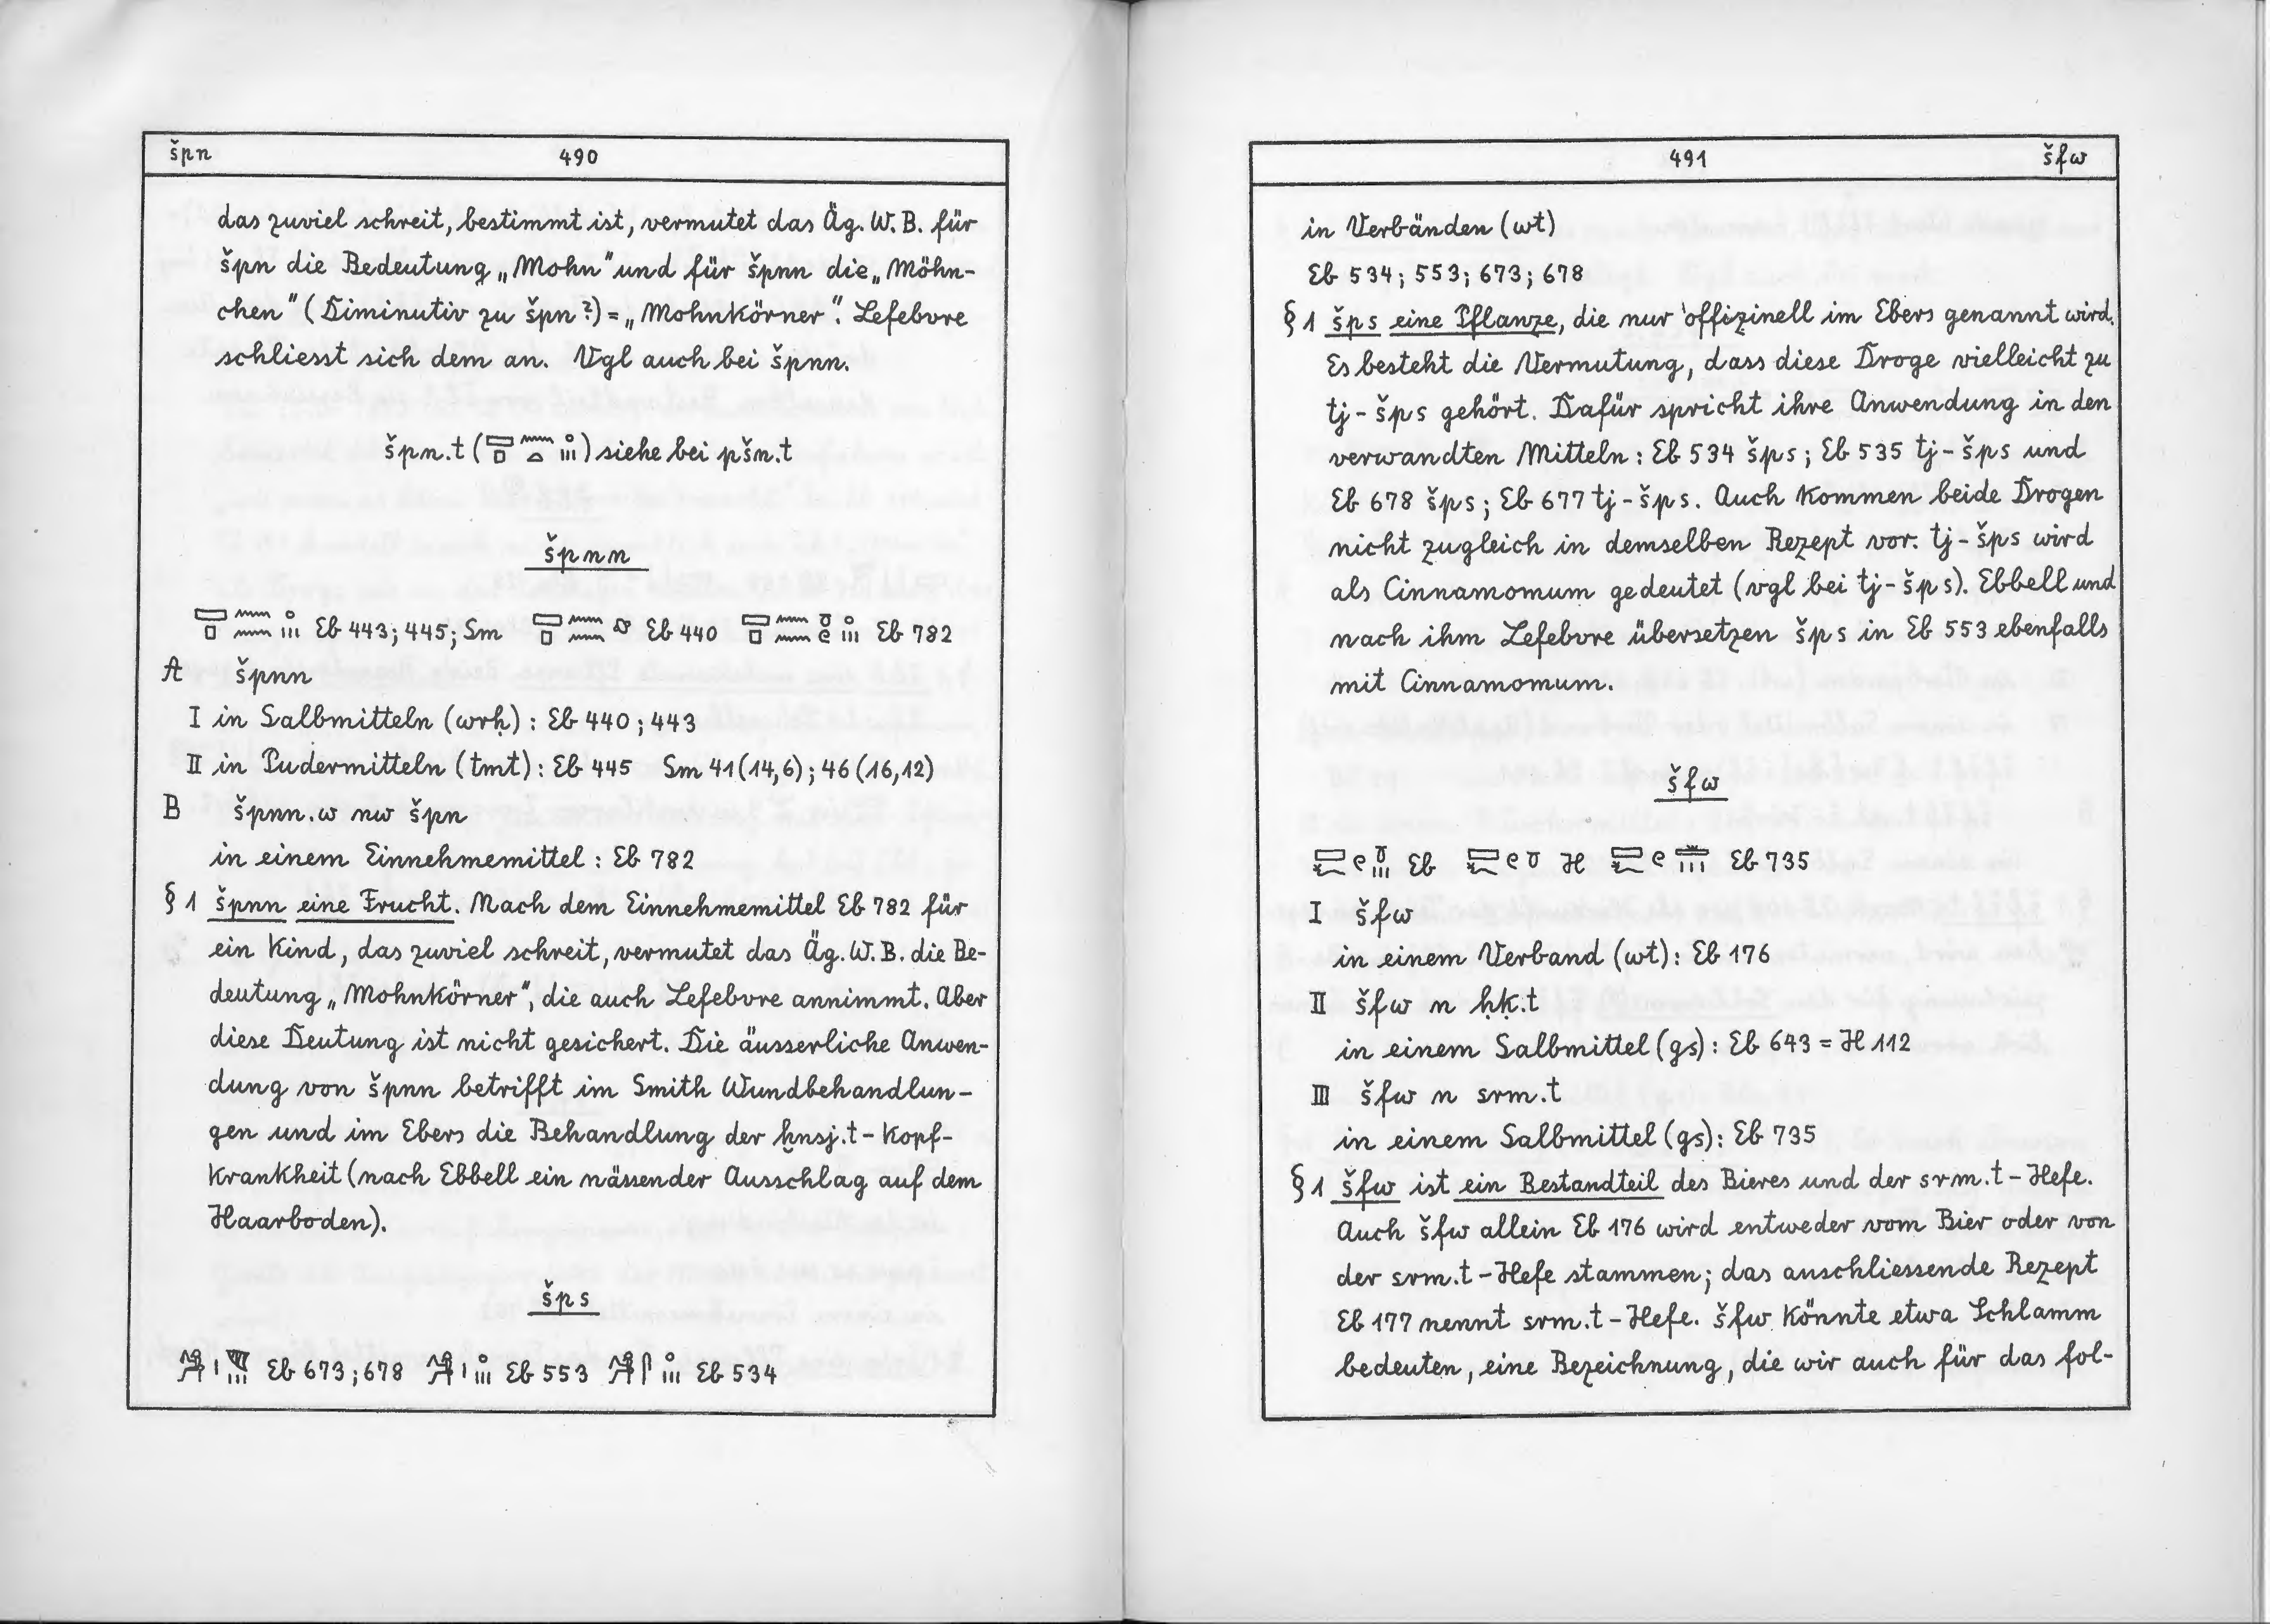 špn 490
das zuviel schreit, bestimmt ist, vermutet das Äg. W. B. für
špn die Bedeutung „Mohn" und für špnn die „Möhn-
chen" (Diminutiv zu špn?) = „Mohnkörner". Lefebvre
schliesst sich dem an. Vgl auch bei špnn.
špn.t ( ) siehe bei pšn.t
špnn
Eb 443; 445; Sm Eb 440 Eb 782
A špnn
I in Salbmitteln (wrḥ) : Eb 440 ; 443
II in Pudermitteln (tmt) : Eb 445 Sm 41 (14,6) ; 46 (16,12)
B špnn.w nw špn
in einem Einnehmemittel : Eb 782
§ 1 špnn eine Frucht. Nach dem Einnehmemittel Eb 782 für
ein Kind, das zuviel schreit, vermutet das Äg. W. B. die Be-
deutung „Mohnkörner", die auch Lefebvre annimmt. Aber
diese Deutung ist nicht gesichert. Die äusserliche Anwen-
dung von špnn betrifft im Smith Wundbehandlun-
gen und im Ebers die Behandlung der ẖnsj.t - Kopf-
krankheit (nach Ebbell ein nässender Ausschlag auf dem
Haarboden).
šps
Eb 673 ; 678 Eb 553 Eb 534
491 šfw
in Verbänden (wt)
Eb 534; 553; 673; 678
§ 1 šps eine Pflanze, die nur offizinell im Ebers genannt wird.
Es besteht die Vermutung, dass diese Droge vielleicht zu
tj - šps gehört. Dafür spricht ihre Anwendung in den
verwandten Mitteln : Eb 534 šps ; Eb 535 tj - šps und
Eb 678 šps ; Eb 677 tj - šps. Auch kommen beide Drogen
nicht zugleich in demselben Rezept vor. tj - šps wird
als Cinnamomum gedeutet (vgl bei tj - šps). Ebbell und
nach ihm Lefebvre übersetzen šps in Eb 553 ebenfalls
mit Cinnamomum.
šfw
Eb H Eb 735
I šfw
in einem Verband (wt) : Eb 176
II šfw n ḥḳ.t
in einem Salbmittel (gs) : Eb 643 = H 112
III šfw n srm.t
in einem Salbmittel (gs) : Eb 735
§ 1 šfw ist ein Bestandteil des Bieres und der srm.t - Hefe.
Auch šfw allein Eb 176 wird entweder vom Bier oder von
der srm.t - Hefe stammen; das anschliessende Rezept
Eb 177 nennt srm.t - Hefe. šfw könnte etwa Schlamm
bedeuten, eine Bezeichnung, die wir auch für das fol-